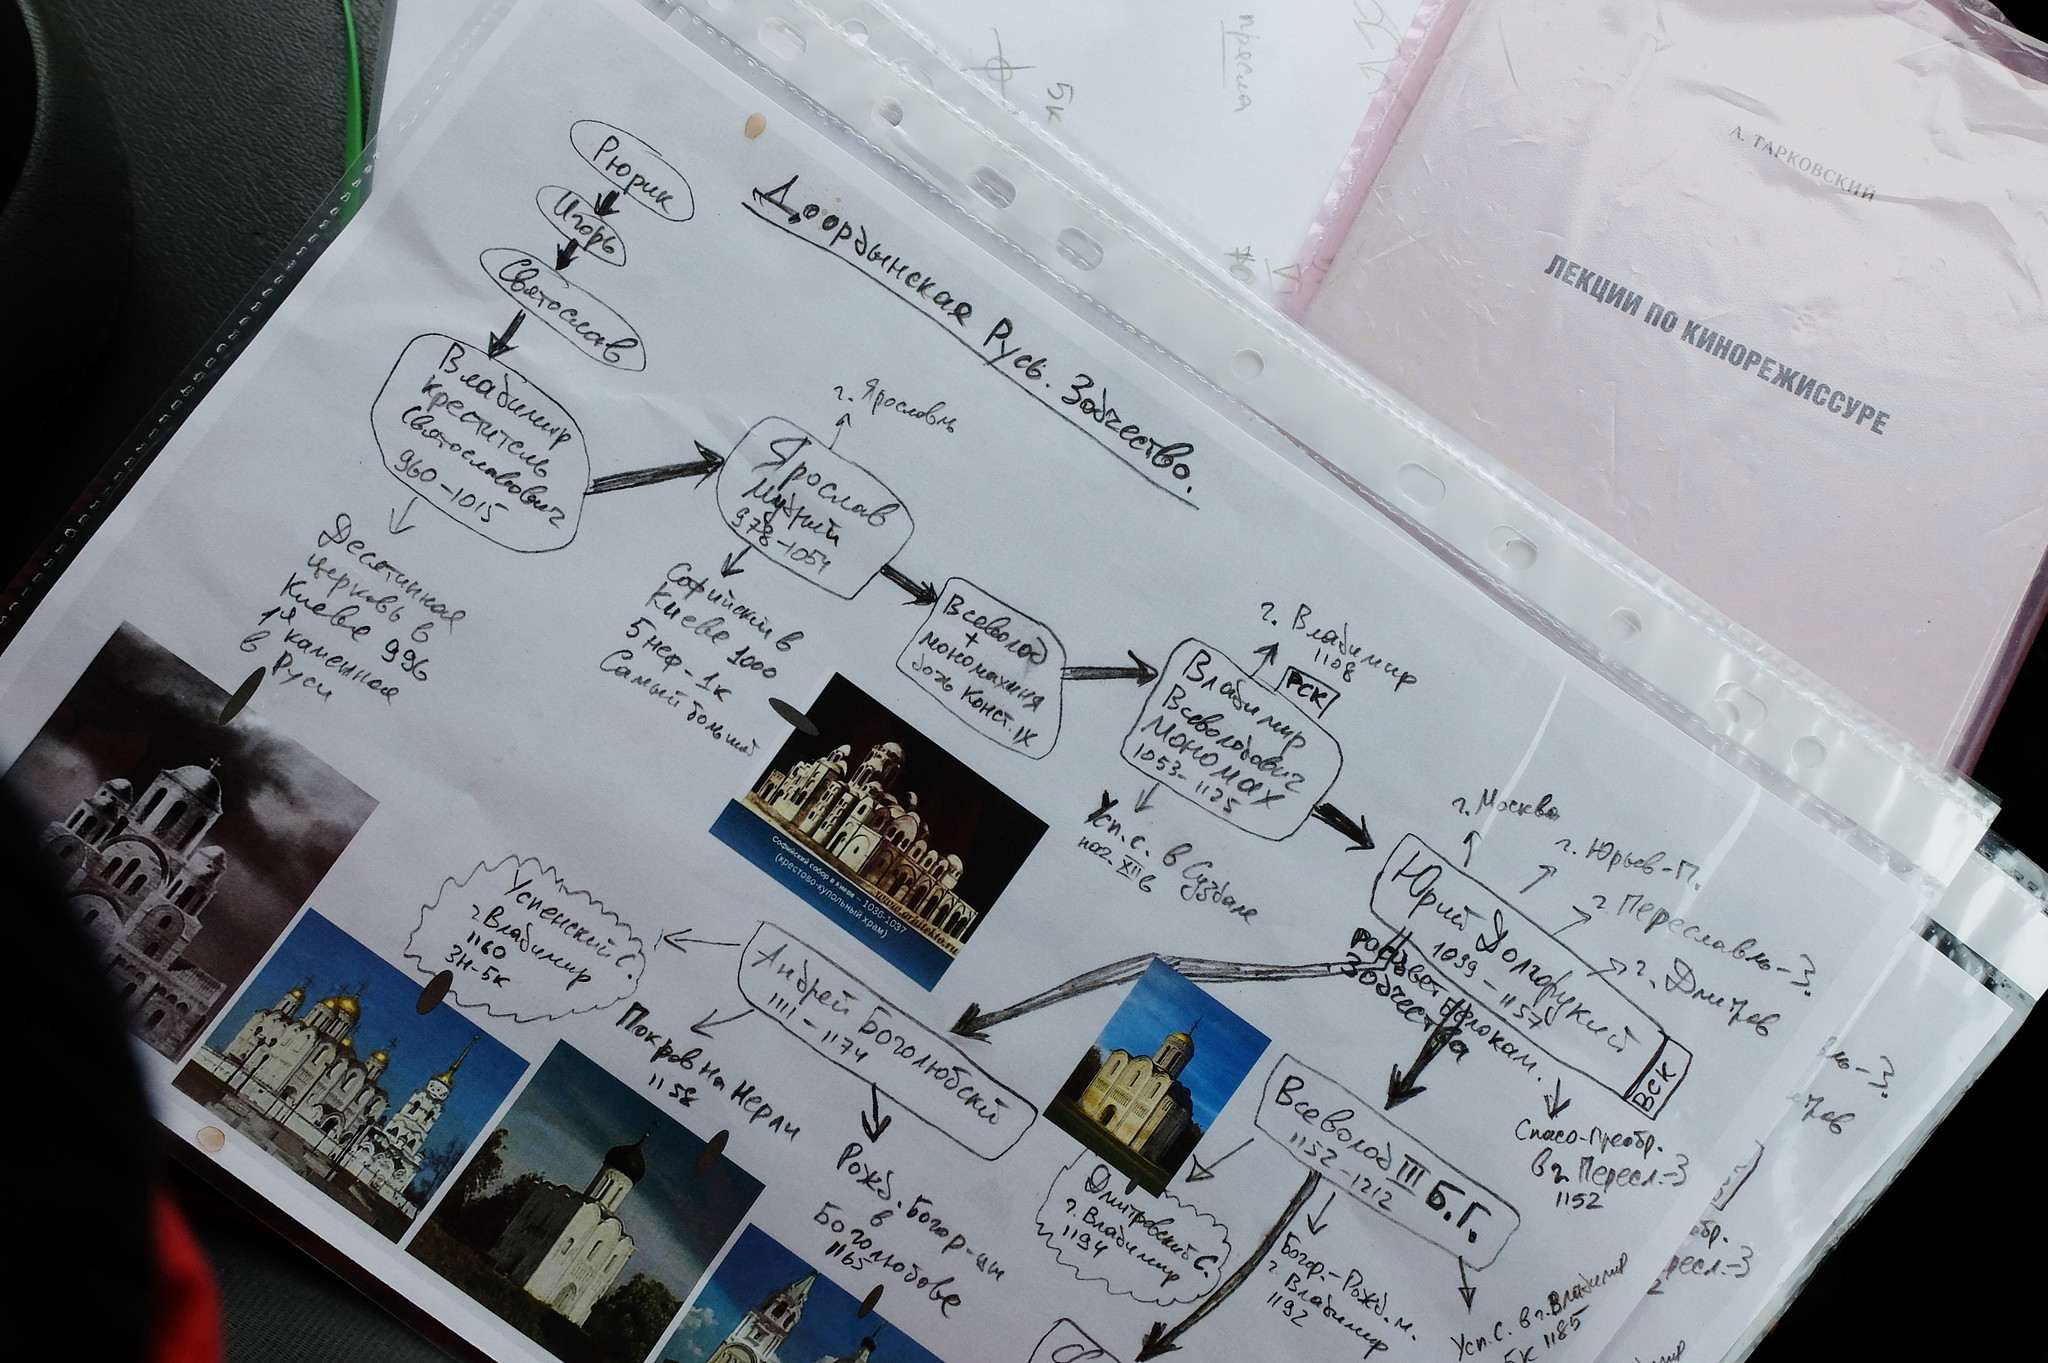 Доордынская Русь. Зодчество.
Рюрик
Игорь
Святослав
Владимир
креститель
Святославович
960-1015
Десятинная
церковь в
Киеве 996
1я каменная
в Руси
г. Ярославль
Ярослав
Мудрый
978-1054
Софийский в
Киеве 1000
5 неф-1к
Самый большой
Софийский собор в Киеве – 1036-1037
(крестово-купольный храм)
Всеволод
+
мономахиня
дочь Конст. IX
г. Владимир
1108
РСК
Владимир
Всеволодович
Мономах
1053-
1125
Усп. С. в Суздале
нач. XII в
г. Москва
г. Юрьев-П.
г. Переславль-З.
г. Дмитров
Юрий Долгорукий
1099-1157
ВСК
Расцвет белокам.
Зодчества
Спасо-Преобр.
в г. Пересл.-З
1152
Андрей Боголюбский
1111-1174
Успенский С.
г. Владимир
1160
3Н-5к
Покров на Нерли
1158
Рожд. Богор-цы
в
Боголюбове
1165
Всеволод III Б.Г.
1152-1212
Дмитровский С.
г. Владимир
1194
Богор.-Рожд. м.
г. Владимир
1192
Усп. С. в г. Владимир
5к 1185
5к
А. ТАРКОВСКИЙ
ЛЕКЦИИ ПО КИНОРЕЖИССУРЕ